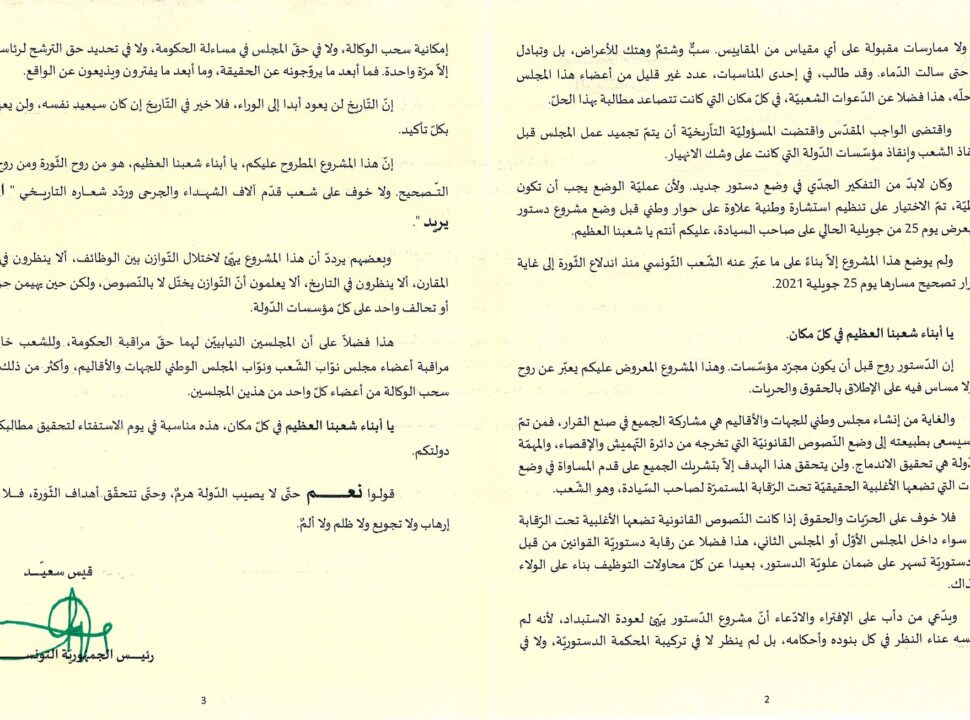 ولا ممارسات مقبولة على أي مقياس من المقاييس. سبٌّ وشتمٌ وهتك للأعراض، بل وتبادل
حتى سالت الدّماء. وقد طالب، في إحدى المناسبات، عدد غير قليل من أعضاء هذا المجلس
حلّه، هذا فضلا عن الدّعوات الشعبيّة، في كلّ مكان التي كانت تتصاعد مطالبة بهذا الحلّ.
واقتضى الواجب المقدّس واقتضت المسؤوليّة التاّريخيّة أن يتمّ تجميد عمل المجلس قبل
الشعب وإنقاذ مؤسّسات الدّولة التي كانت على وشك الانهيار.
وكان لابدّ من التفكير الجدّي في وضع دستور جديد. ولأن عمليّة الوضع يجب أن تكون
تمّ الاختيار على تنظيم استشارة وطنية علاوة على حوار وطني قبل وضع مشروع دستور
يوم 25 من جويلية الحالي على صاحب السيادة، عليكم أنتم يا شعبنا العظيم.
ولم يوضع هذا المشروع إلاّ بناءً على ما عبّر عنه الشّعب التّونسي منذ اندلاع الثّورة إلى غاية
تصحيح مسارها يوم 25 جويلية 2021.
يا أبناء شعبنا العظيم في كلّ مكان.
إن الدّستور روح قبل أن يكون مجرّد مؤسّسات. وهذا المشروع المعروض عليكم يعبّر عن روح
ولا مساس فيه على الإطلاق بالحقوق والحريات.
والغاية من إنشاء مجلس وطني للجهات والأقاليم هي مشاركة الجميع في صنع القرار، فمن تمّ
سيسعى بطبيعته إلى وضع النّصوص القانونيّة التي تخرجه من دائرة التّهميش والإقصاء، والمهمّة
هي تحقيق الاندماج. ولن يتحقق هذا الهدف إلاّ بتشريك الجميع على قدم المساواة في وضع
التي تضعها الأغلبية الحقيقيّة تحت الرّقابة المستمرّة لصاحب السّيادة، وهو الشّعب.
فلا خوف على الحرّيات والحقوق إذا كانت النّصوص القانونية تضعها الأغلبية تحت الرّقابة
سواء داخل المجلس الأوّل أو المجلس الثاني، هذا فضلا عن رقابة دستوريّة القوانين من قبل
تسهر على ضمان علويّة الدستور، بعيدا عن كلّ محاولات التوظيف بناء على الولاء
ذاك.
ويدّعي من دأب على الإفتراء والادّعاء أنّ مشروع الدّستور يهيّئ لعودة الاستبداد، لأنه لم
عناء النظر في كل بنوده وأحكامه، بل لم ينظر لا في تركيبة المحكمة الدستوريّة، ولا في
2
إمكانية سحب الوكالة، ولا في حقّ المجلس في مساءلة الحكومة، ولا في تحديد حق الترشح
إلاّ مرّة واحدة. فما أبعد ما يروّجونه عن الحقيقة، وما أبعد ما يفترون ويذيعون عن الواقع.
إنّ التّاريخ لن يعود أبدا إلى الوراء، فلا خير في التّاريخ إن كان سيعيد نفسه، ولن
بكلّ تأكيد.
إنّ هذا المشروع المطروح عليكم، يا أبناء شعبنا العظيم، هو من روح الثّورة ومن
التّصحيح. ولا خوف على شعب قدّم آلاف الشهداء والجرحى وردّد شعاره التاريخي "
يريد ".
وبعضهم يردّد أن هذا المشروع يهيّئ لاختلال التّوازن بين الوظائف، ألا ينظرون في
المقارن، ألا ينظرون في التاريخ، ألا يعلمون أنّ التّوازن يختلّ لا بالنّصوص، ولكن حين يهيمن
أو تحالف واحد على كلّ مؤسسات الدّولة.
هذا فضلاً على أن المجلسين النيابيّين لهما حقّ مراقبة الحكومة، وللشعب
مراقبة أعضاء مجلس نوّاب الشّعب ونوّاب المجلس الوطني للجهات والأقاليم، وأكثر من ذلك
سحب الوكالة من أعضاء كلّ واحد من هذين المجلسين.
يا أبناء شعبنا العظيم في كلّ مكان، هذه مناسبة في يوم الاستفتاء لتحقيق
دولتكم.
قولوا نعــــم حتّى لا يصيب الدّولة هرمٌ، وحتّى تتحقّق أهداف الثّورة، فلا
إرهاب ولا تجويع ولا ظلم ولا ألمٌ.
قيس سعيّد
رئيس الجمهوريّة
3